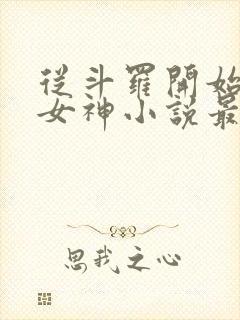 從斗羅開始
女神小說最
思我之心